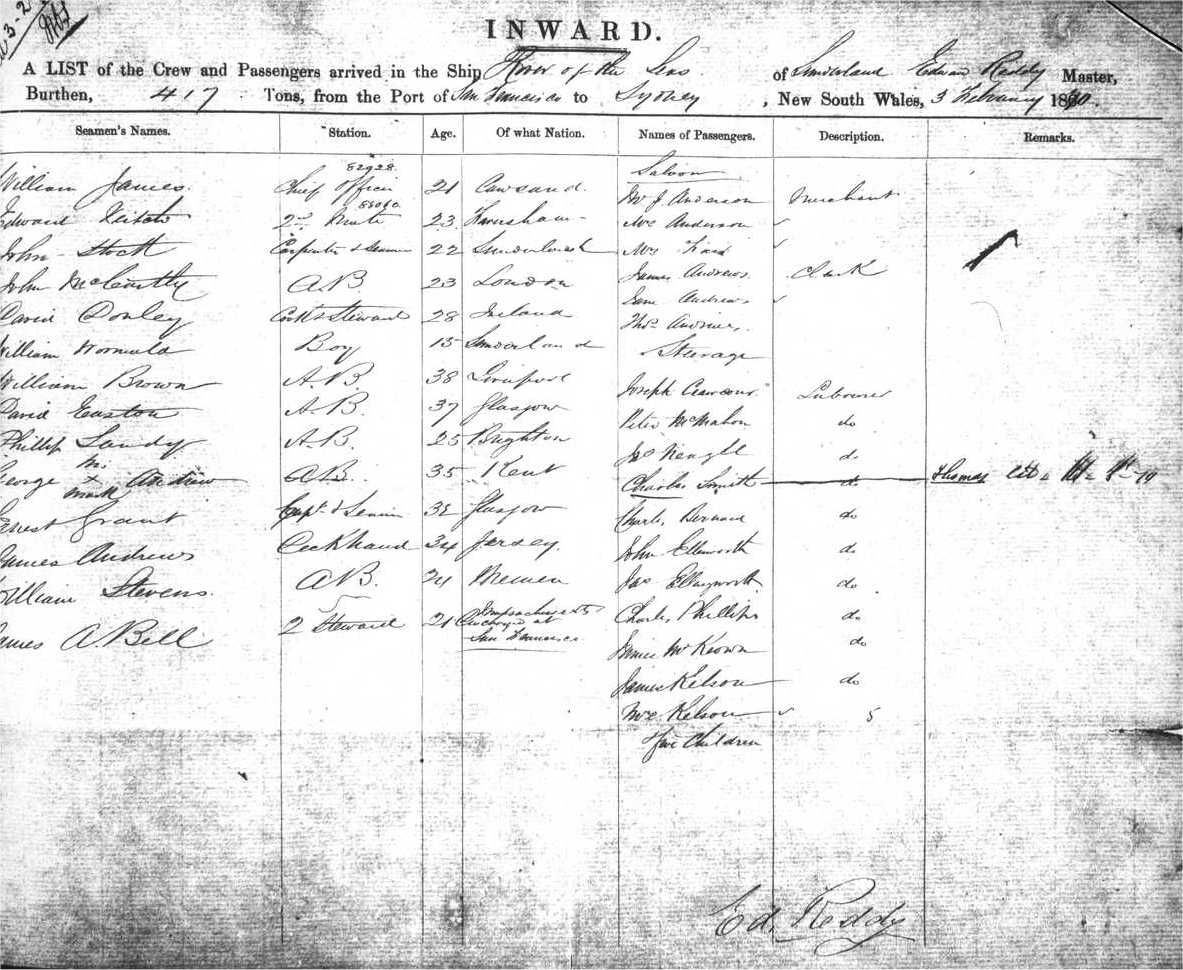 INWARD.
A LIST of the Crew and Passengers arrived in the Ship Rover of the Seas of Sunderland Edwin Reddy Master,
Burthen, 417 Tons, from the Port of San Francisco to Sydney, New South Wales, 3 February 18
Seamen's Names. Station. Age. Of what Nation. Names of Passengers. Description. Remarks.
Saloon
82928
William James. Chief Officer 21 Cawsand. Mr J. Anderson Merchant
Edward 2nd Mate 23 Mrs Anderson
John Stott Carpenter & Seaman 22 Sunderland Mrs
John McCarthy A.B. 23 London James Andrews Clerk
David Donley Cook & Steward 28 Ireland Jane Andrews
Thos Andrews.
William Boy 15 Sunderland Steerage
William Brown A.B. 38 Liverpool Joseph Labourer
David Easton A.B. 37 Glasgow Peter McMahon do
Phillip Landy A.B. 25 Brighton Jas do
George Andrew A.B. 35 Kent Charles Smith do Thomas
his x mark
Ernest Grant Glasgow Charles Bernard do
James Andrews 34 Jersey. John Ellsworth do
William Stevens. A.B. 21 Bremen Jas Ellingworth do
James A. Bell 2 Steward 21 Massachusets Charles Phillips do
discharged at
San Francisco
James McKeown do
James Kelson do
Mrs Kelson 5
Five Children
Ed. Reddy